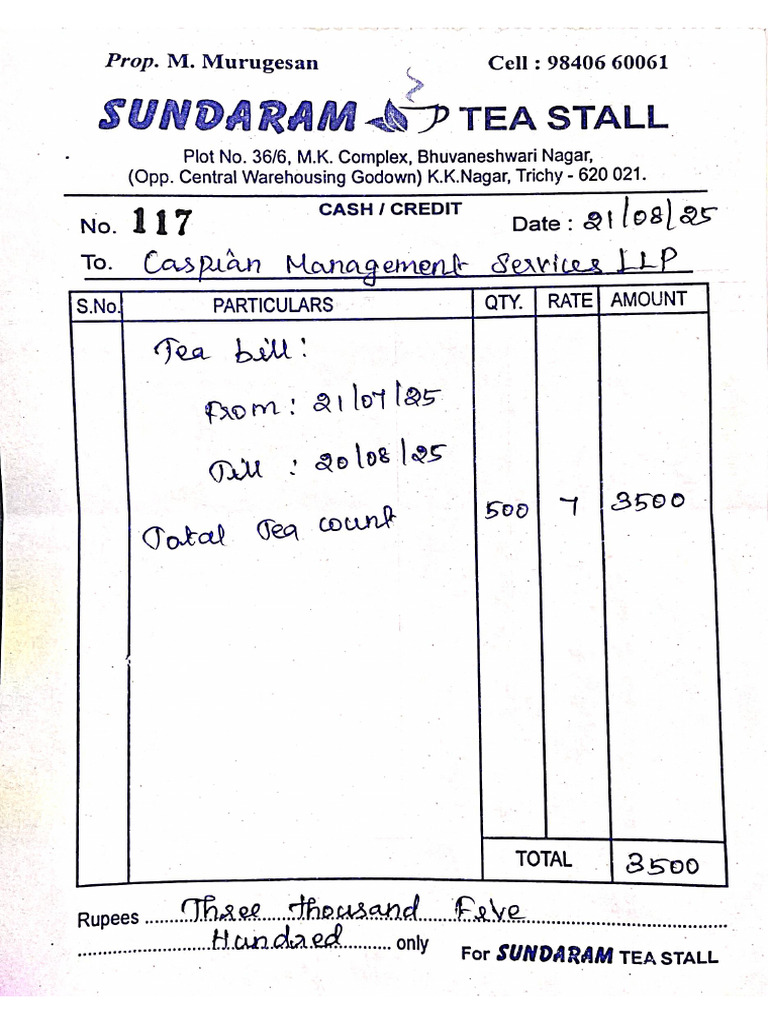 Prop. M. Murugesan Cell : 98406 60061
SUNDARAM TEA STALL
Plot No. 36/6, M.K. Complex, Bhuvaneshwari Nagar,
(Opp. Central Warehousing Godown) K.K.Nagar, Trichy - 620 021.
CASH / CREDIT
No. 117 Date : 21/08/25
To. Caspian Management Services LLP
S.No. PARTICULARS QTY. RATE AMOUNT
Tea bill :
From : 21/07/25
Till : 20/08/25
Total Tea count 500 7 3500
TOTAL 3500
Rupees Three thousand Five
Hundred only
For SUNDARAM TEA STALL